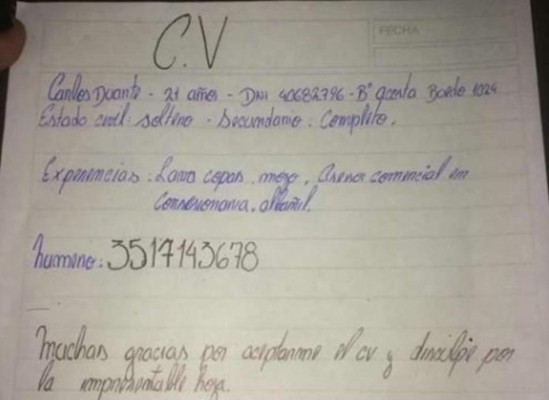 FECHA
C.V
Carlos Duarte - 21 años - DNI 40682796 - B° acosta Bordo 1024
Estado civil: soltero - Secundario: Completo.
Experiencias: Lava copas, mozo, Asesor comercial en
Concesionaria, albañil.
humero: 3517143678
Muchas gracias por aceptarme el cv y disculpe por
la impresentable hoja.